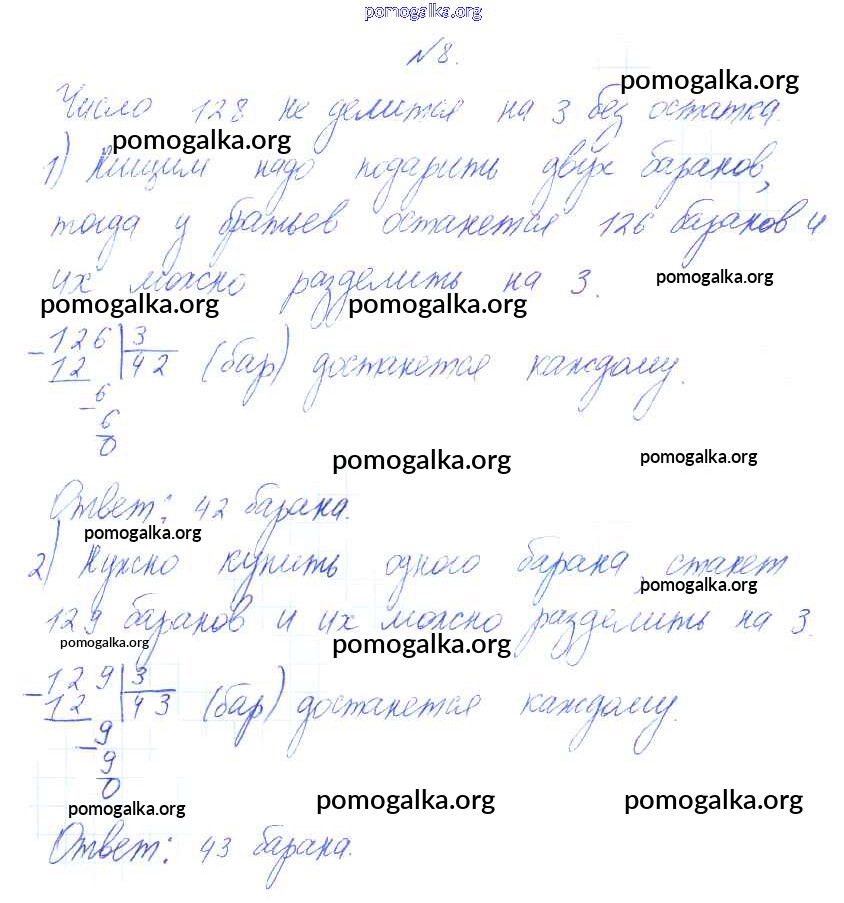 pomogalka.org
№8.
pomogalka.org
Число 128 не делится на 3 без остатка.
pomogalka.org
1) Нищим надо подарить двух баранов,
тогда у братьев останется 126 баранов и
их можно разделить на 3.
pomogalka.org
pomogalka.org pomogalka.org
- 126 | 3
12 | 42 (бар) достанется каждому.
- 6
6
0
pomogalka.org pomogalka.org
Ответ: 42 барана.
pomogalka.org
2) Нужно купить одного барана, станет
pomogalka.org
129 баранов и их можно разделить на 3.
pomogalka.org pomogalka.org
- 129 | 3
12 | 43 (бар) достанется каждому.
- 9
9
0
pomogalka.org pomogalka.org pomogalka.org
Ответ: 43 барана.